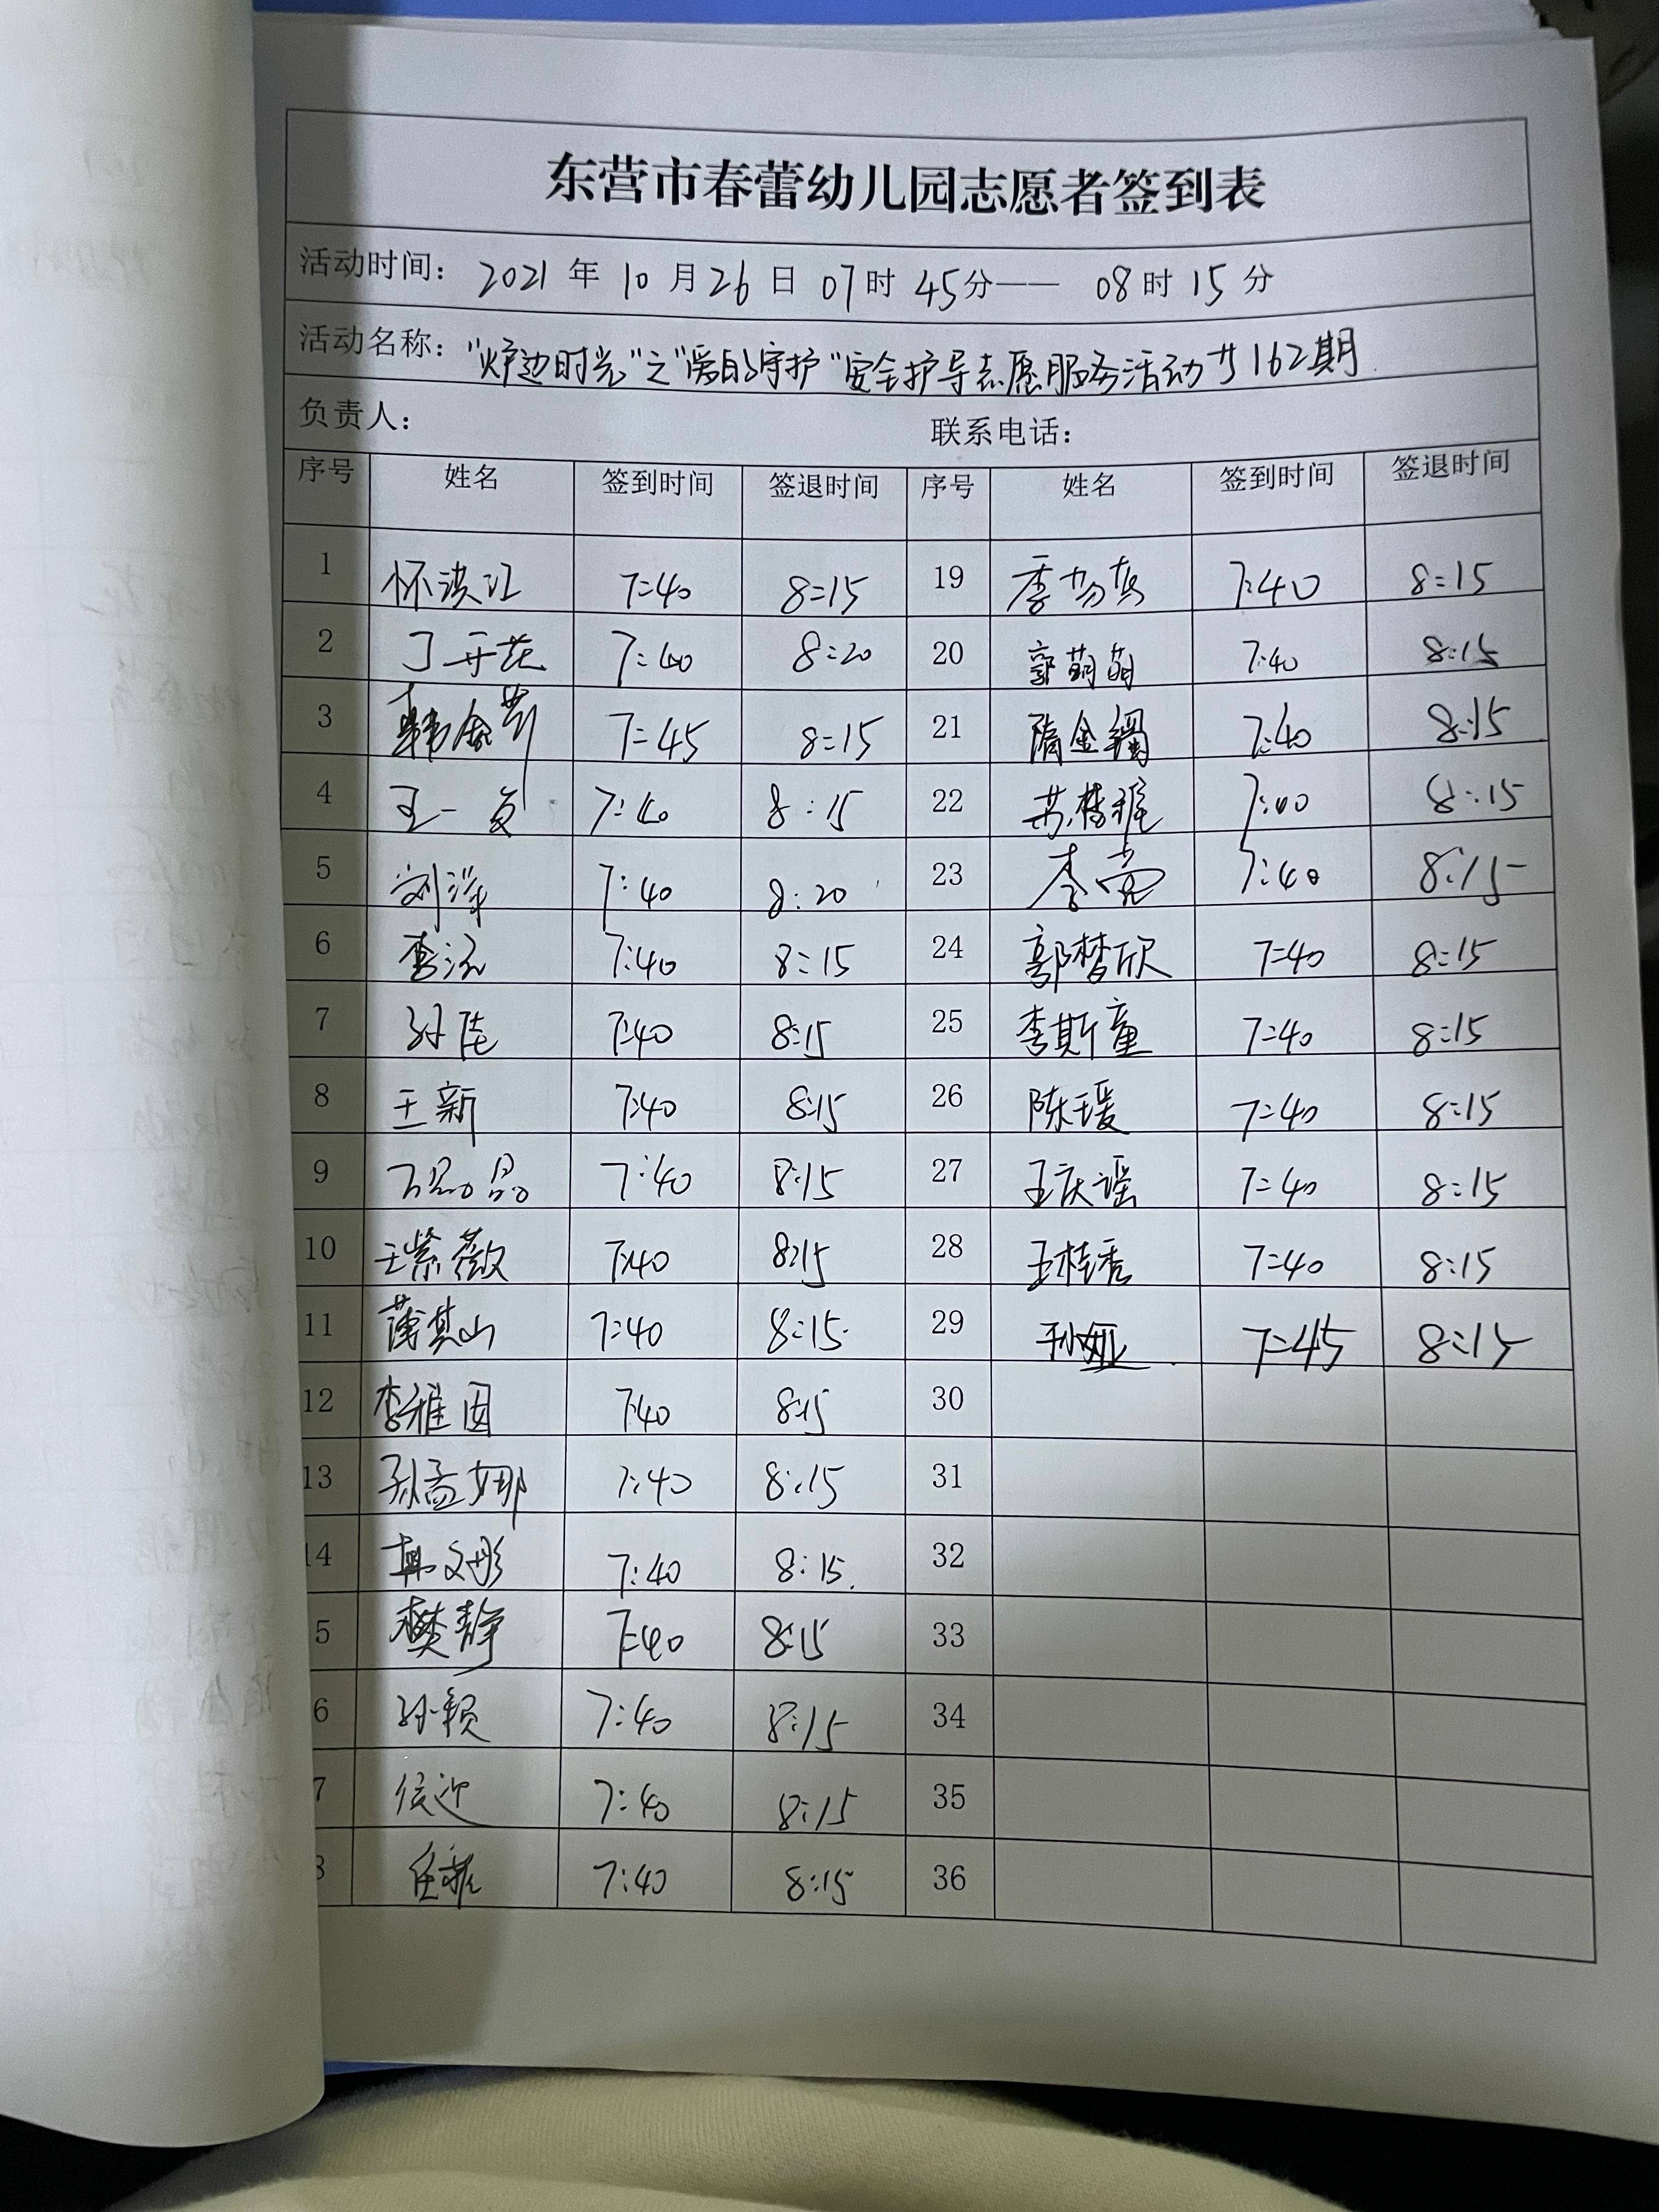 东营市春蕾幼儿园志愿者签到表
活动时间： 2021 年 10 月 26 日 07 时 45 分—— 08 时 15 分
活动名称："炉边时光"之"爱的守护"安全护导志愿服务活动 162期
负责人： 联系电话：
序号 姓名 签到时间 签退时间 序号 姓名 签到时间 签退时间
1 7:40 8:15 19 7:40 8:15
2 7:40 8:20 20 郭萌萌 7:40 8:15
3 7:45 8:15 21 隋金镯 7:40 8:15
4 王一 7:40 8:15 22 苏梦雅 7:40 8:15
5 刘洋 7:40 8:20 23 李莹 7:40 8:15
6 李泓 7:40 8:15 24 郭梦欣 7:40 8:15
7 孙陆 7:40 8:15 25 李斯童 7:40 8:15
8 王新 7:40 8:15 26 陈瑗 7:40 8:15
9 7:40 8:15 27 王庆谣 7:40 8:15
10 王紫薇 7:40 8:15 28 王桂香 7:40 8:15
11 蒲其山 7:40 8:15 29 孙娅 7:45 8:15
12 李雅囡 7:40 8:15 30
13 孙孟娜 7:40 8:15 31
14 韩文彤 7:40 8:15 32
5 樊静 7:40 8:15 33
6 孙颖 7:40 8:15 34
7 侯迎 7:40 8:15 35
8 任菲 7:40 8:15 36